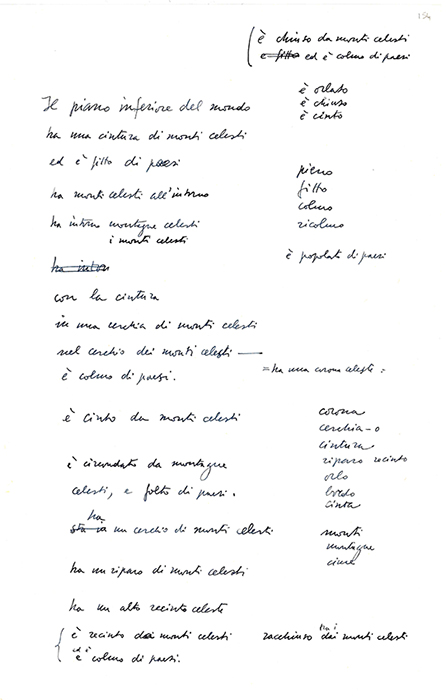 154
è chiuso da monti celesti
e fitto ed è colmo di paesi
è orlato
è chiuso
è cinto
Il piano inferiore del mondo
ha una cintura di monti celesti
ed è fitto di paesi
pieno
fitto
colmo
ricolmo
ha monti celesti all'intorno
ha intorno montagne celesti
i monti celesti
è popolato di paesi
ha intorn
con la cintura
in una cerchia di monti celesti
nel cerchio dei monti celesti —
= ha una corona celeste =
è colmo di paesi.
è cinto da monti celesti
corona
cerchia-o
cintura
riparo recinto
orlo
bordo
cinta
è circondato da montagne
celesti, e folto di paesi.
ha
sta in un cerchio di monti celesti
monti
montagne
cime
ha un riparo di monti celesti
ha un alto recinto celeste
è recinto dai monti celesti
racchiuso dai monti celesti
tra i
ed è
è colmo di paesi.